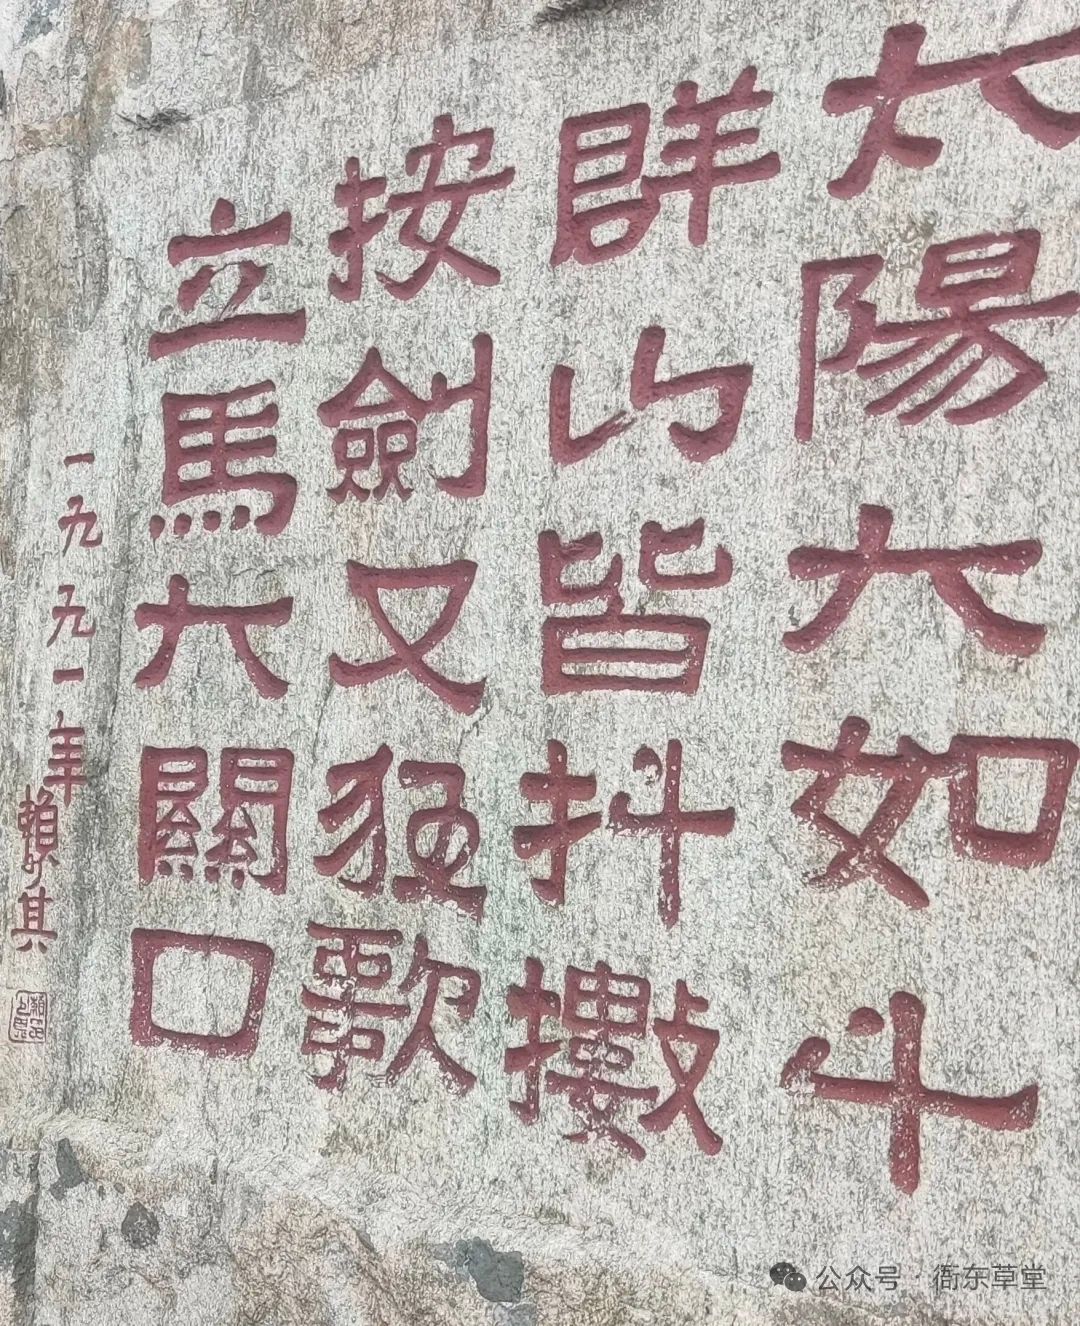 大陽大如斗
群山皆抖擻
按劍又狂歌
立馬大關口
一九九一年
賴少其
公众号 · 衙东草堂